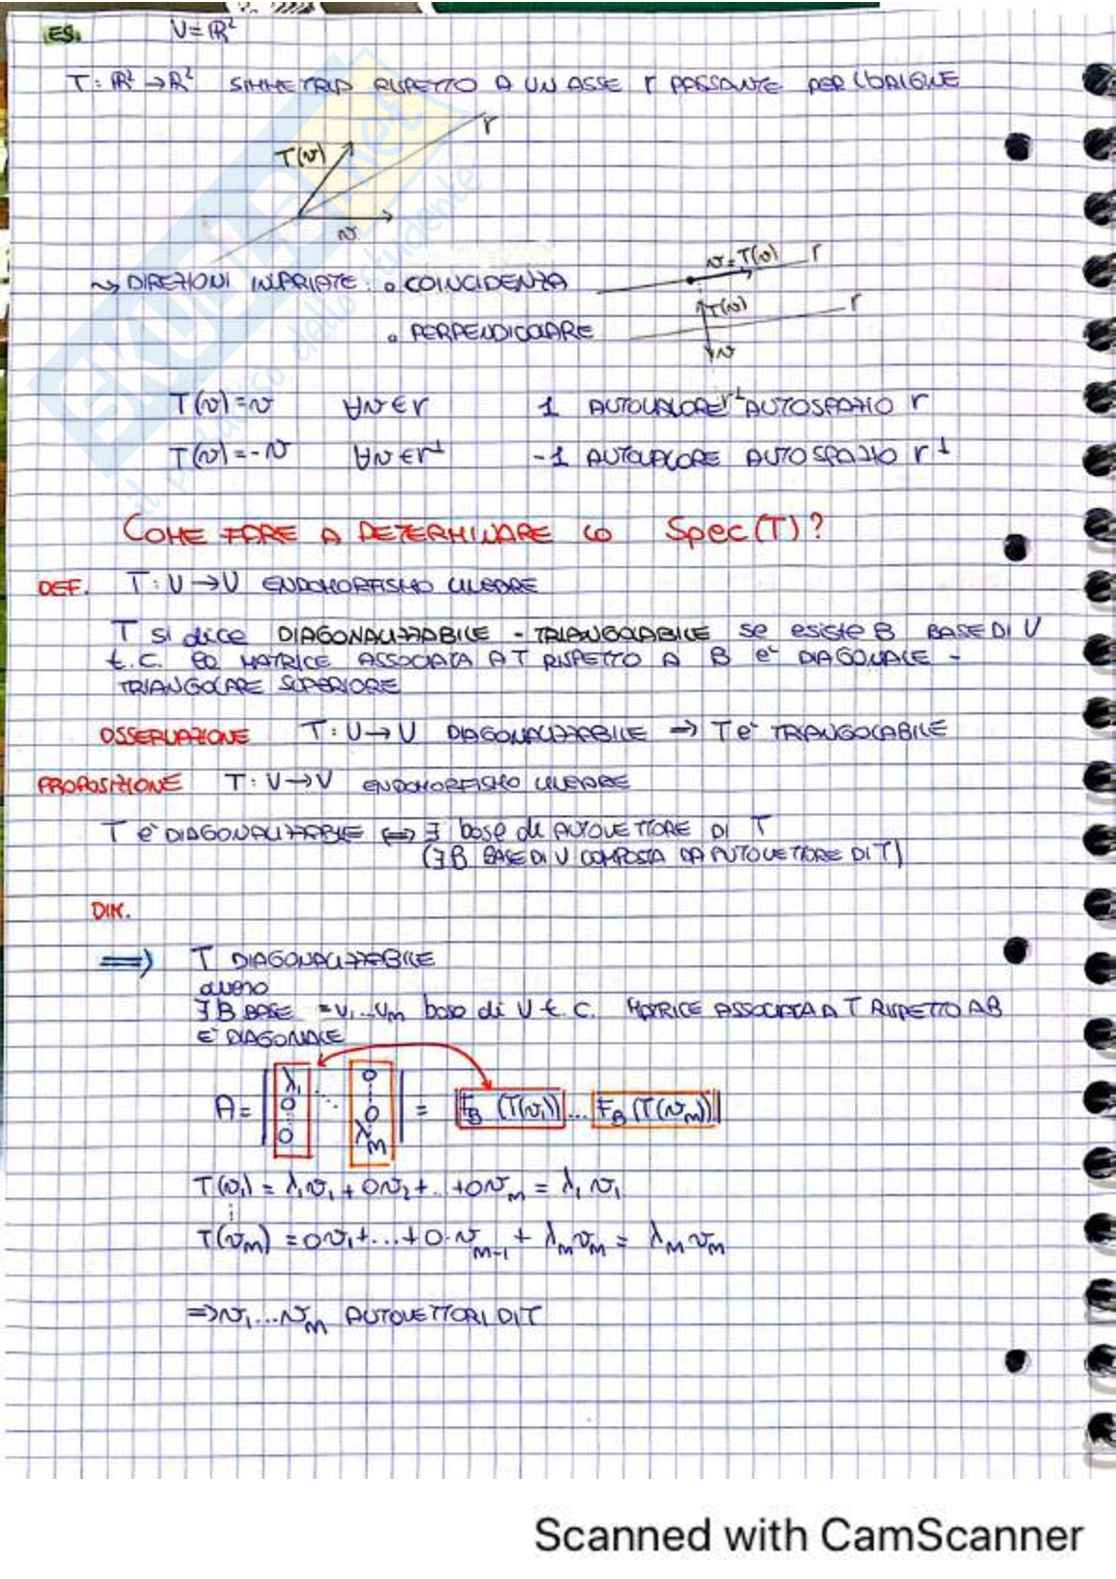 ES. V=ℝ²
T: ℝ² → ℝ² SIMMETRIA RISPETTO A UN ASSE r PASSANTE PER L'ORIGINE
r
T(v)
v
~> DIREZIONI INVARIATE: o COINCIDENZA
v=T(v) r
o PERPENDICOLARE
T(v) r
v
T(v)=v ∀v∈r 1 AUTOVALORE r⊥ AUTOSPAZIO r
T(v)=-v ∀v∈r⊥ -1 AUTOVALORE AUTOSPAZIO r⊥
COME FARE A DETERMINARE LO Spec(T)?
DEF. T: V → V ENDOMORFISMO LINEARE
T si dice DIAGONALIZZABILE - TRIANGOLABILE se esiste B BASE DI V
t.c. LA MATRICE ASSOCIATA A T RISPETTO A B e' DIAGONALE -
TRIANGOLARE SUPERIORE
OSSERVAZIONE T: V → V DIAGONALIZZABILE => T e' TRIANGOLABILE
PROPOSIZIONE T: V → V ENDOMORFISMO LINEARE
T e' DIAGONALIZZABILE <=> ∃ base di AUTOVETTORE DI T
(∃ B BASE DI V COMPOSTA DA AUTOVETTORE DI T)
DIM.
=> T DIAGONALIZZABILE
ovvero
∃ B BASE = v₁...vₘ base di V t.c. MATRICE ASSOCIATA A T RISPETTO A B
E' DIAGONALE
A = | λ₁ 0 ⋮ 0 ⋱ 0 ⋮ 0 λₘ | = | F_B (T(v₁)) ... F_B (T(vₘ)) |
T(v₁) = λ₁v₁ + 0v₂ + ... + 0vₘ = λ₁ v₁
⋮
T(vₘ) = 0v₁ + ... + 0·vₘ₋₁ + λₘvₘ = λₘ vₘ
=> v₁...vₘ AUTOVETTORI DI T
SKUOLA.net
il paradiso dello studente
Scanned with CamScanner